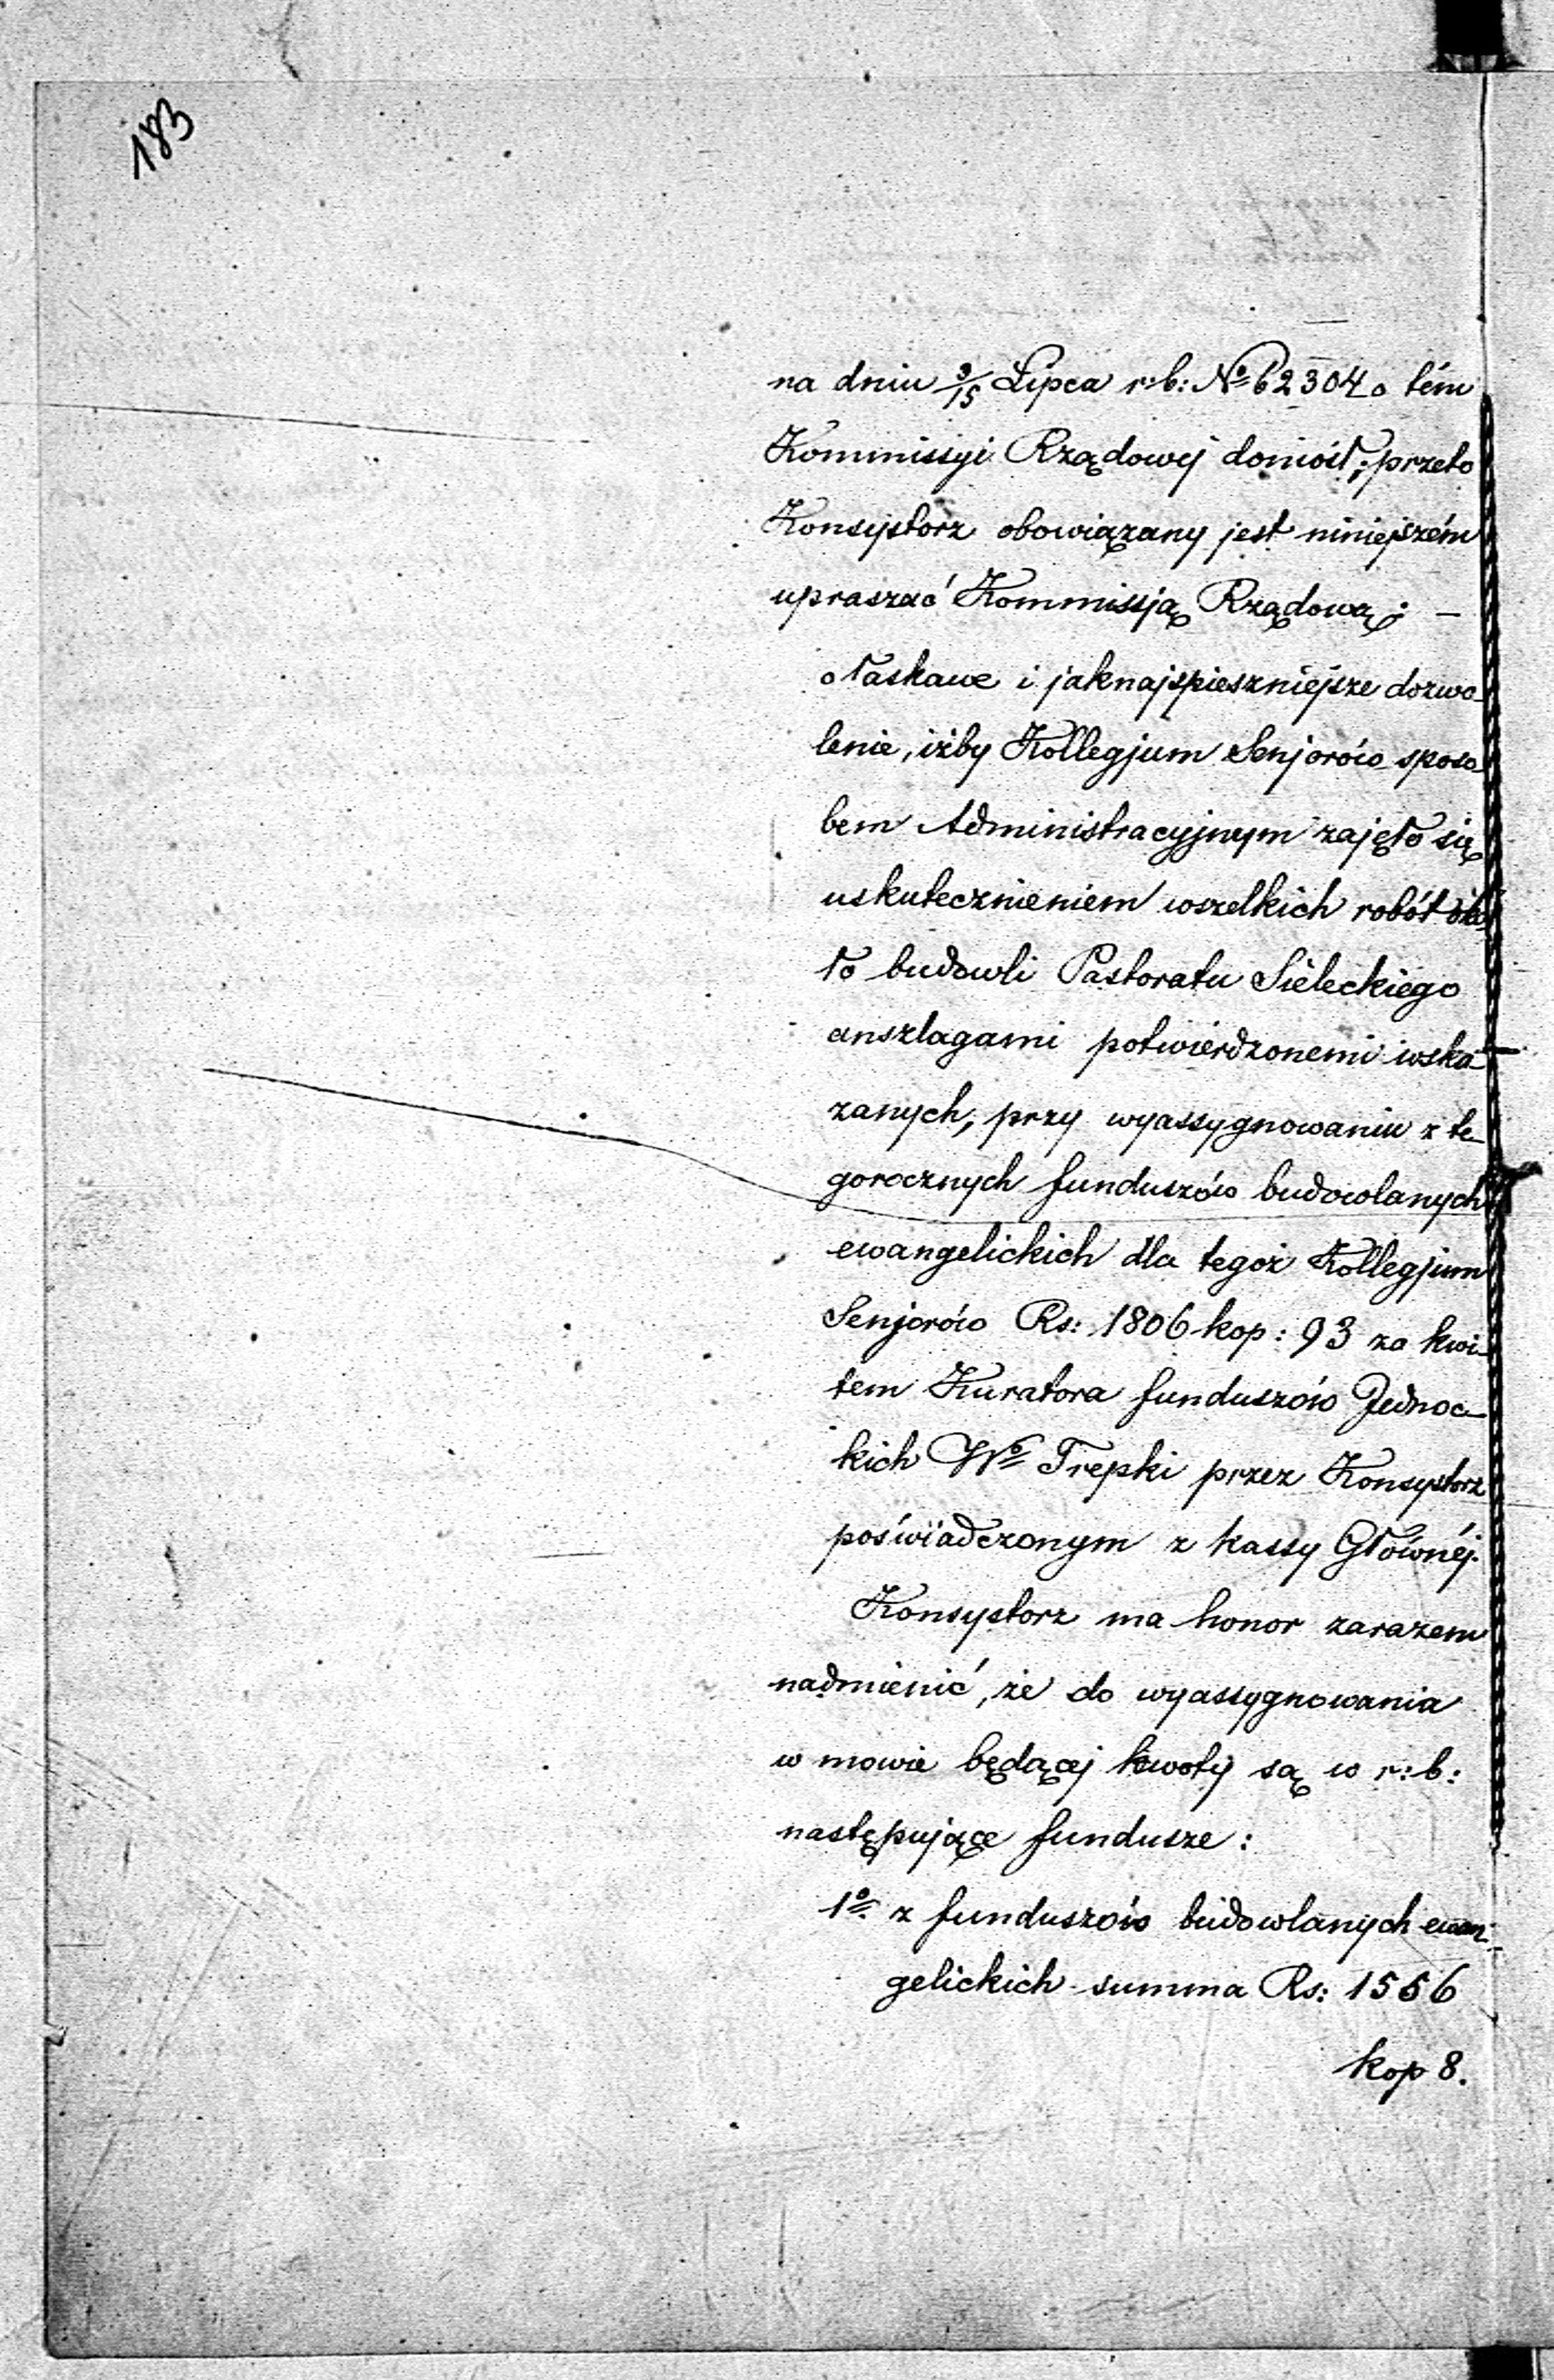 183
na dniu 3/15 Lipca r: b: № 62304 o tém
Kommissyi Rządowej doniósł; przeto
Konsystorz obowiązany jest niniejszém
upraszać Kommissją Rządową: –
o łaskawe i jaknajspieszniejsze dozwo-
lenie, iżby Kollegjum Senjorów sposo-
bem Administracyjnym zajęło się
uskutecznieniem wszelkich robót oko-
ło budowli Pastoratu Sieleckiego
anszlagami potwierdzonemi wska-
zanych, przy wyassygnowaniu z te-
gorocznych funduszów budowlanych
ewangelickich dla tegoż Kollegjum
Senjorów Rs: 1806 kop: 93 za kwi-
tem Kuratora funduszów Jednoc-
kich Wº Trepki przez Konsystorz
poświadczonym z kassy Głównéj.
Konsystorz ma honor zarazem
nadmienić, że do wyassygnowania
w mowie będącej kwoty są w r: b:
następujące fundusze:
1º z funduszów budowlanych ewan-
gelickich summa Rs: 1556
kop 8.